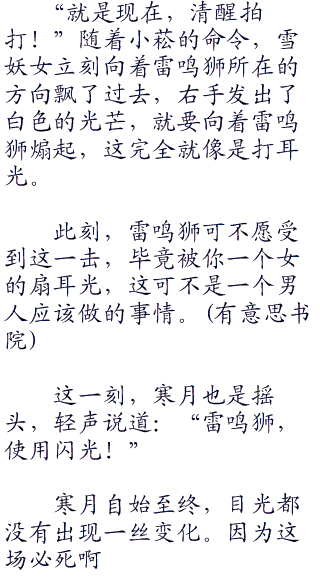 “就是现在，清醒拍
打！”随着小菘的命令，雪
妖女立刻向着雷鸣狮所在的
方向飘了过去，右手发出了
白色的光芒，就要向着雷鸣
狮煽起，这完全就像是打耳
光。
此刻，雷鸣狮可不愿受
到这一击，毕竟被你一个女
的扇耳光，这可不是一个男
人应该做的事情。(有意思书
院)
这一刻，寒月也是摇
头，轻声说道：“雷鸣狮，
使用闪光！”
寒月自始至终，目光都
没有出现一丝变化。因为这
场必死啊